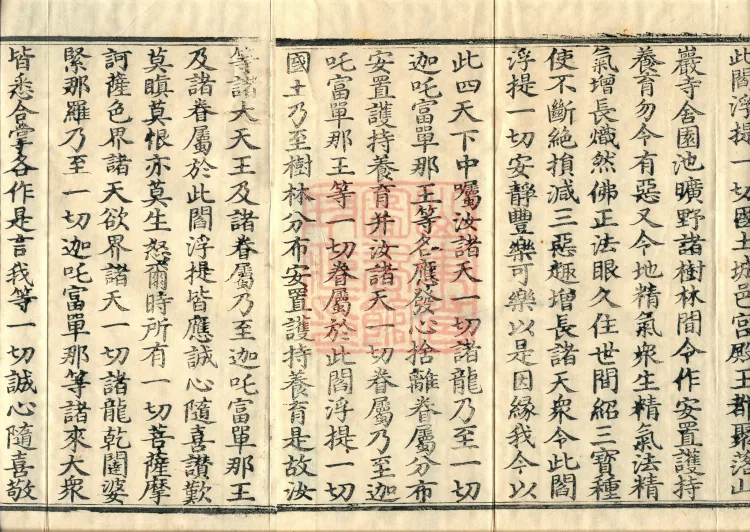 此閻浮提一切國土城邑宮殿王都聚落山
巖寺舍園池曠野諸樹林間令作安置護持
養育勿令有惡又令地精氣衆生精氣法精
氣增長熾然佛正法眼久住世間紹三寶種
使不斷絕損減三惡趣增長諸天衆令此閻
浮提一切安靜豐樂可樂以是因緣我今以
此四天下中囑汝諸天一切諸龍乃至一切
迦吒富單那王等各應發心捨離眷屬分布
安置護持養育并汝諸天一切眷屬乃至迦
吒富單那王等一切眷屬於此閻浮提一切
國土乃至樹林分布安置護持養育是故汝
等諸大天王及諸眷屬乃至迦吒富單那王
及諸眷屬於此閻浮提皆應誠心隨喜讚歎
莫瞋莫恨亦莫生怒爾時所有一切菩薩摩
訶薩色界諸天欲界諸天一切諸龍乾闥婆
緊那羅乃至一切迦吒富單那等諸來大衆
皆悉合掌各作是言我等一切誠心隨喜敬